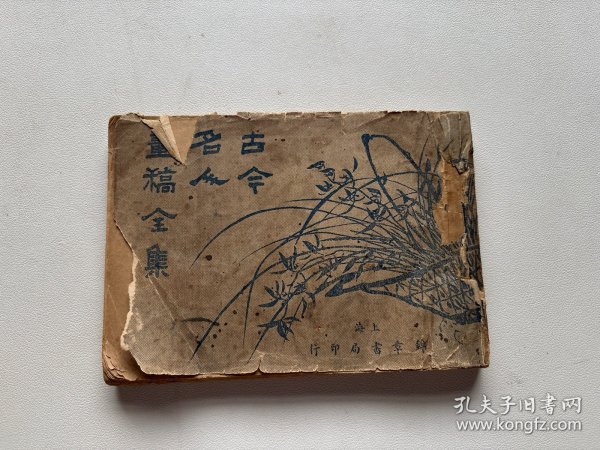 古今
名人
畫稿全集
上海
錦章書局印行
孔夫子旧书网
www.kongfz.com